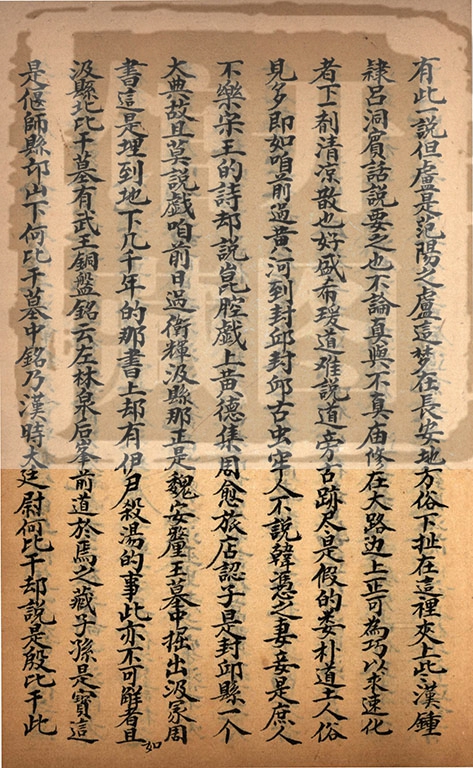 有此一說但盧是范陽之盧這梦在長安地方俗下扯在這裡夾上此漢鍾
隸吕洞賓話說要之也不論真與不真庙修在大路边上正可為巧以求速化
者下一剂清凉散也好盛希瑗道难說道旁古跡尽是假的娄朴道土人俗
見多即如咱前過黄河到封邱封邱古虫牢人不說韓憑之妻妾是庶人
不樂宋王的詩却說崑腔戯上黄德集周愈旅店認子是封邱縣一个
大典故且莫說戯咱前日過衛輝汲縣那正是魏安釐王墓中掘出汲冢周
書這是埋到地下几千年的那書上却有伊尹殺湯的事此亦不可解者且如
汲縣北比干墓有武王銅盤銘云左林泉后峯前道於焉之藏子孫是寳這
是偃師縣邙山下何比干墓中銘乃漢時大廷尉何比干却說是殷比干此